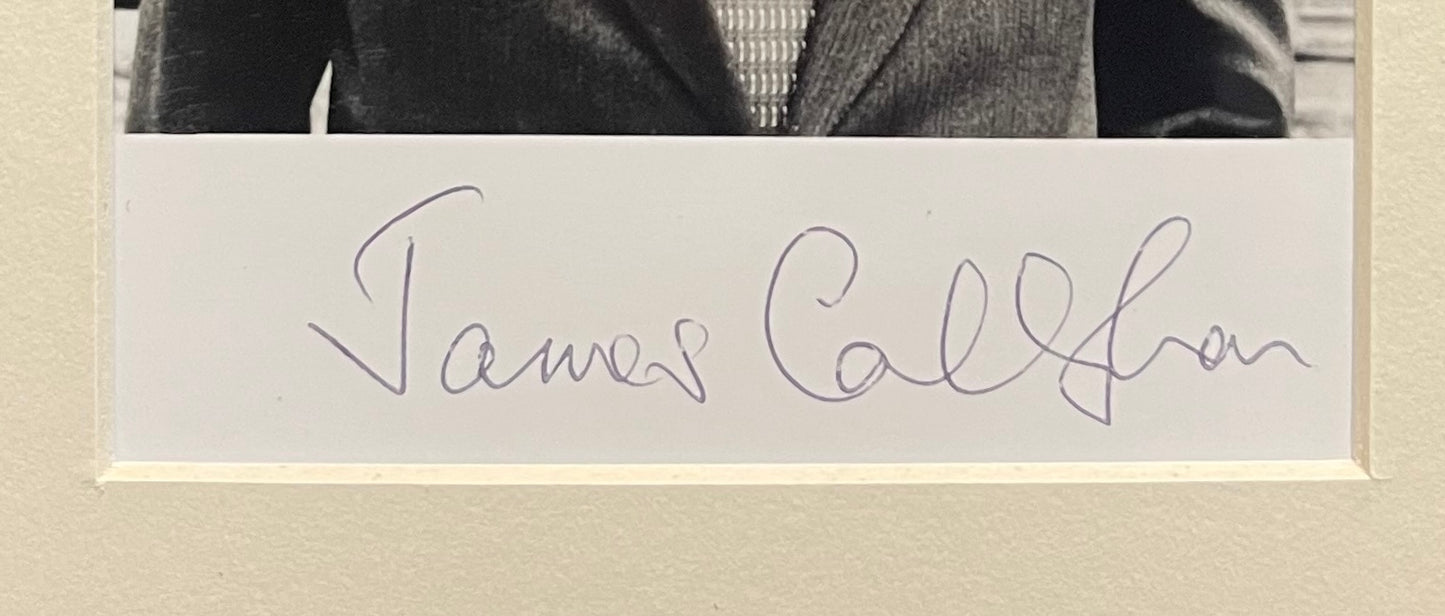 James Callaghan